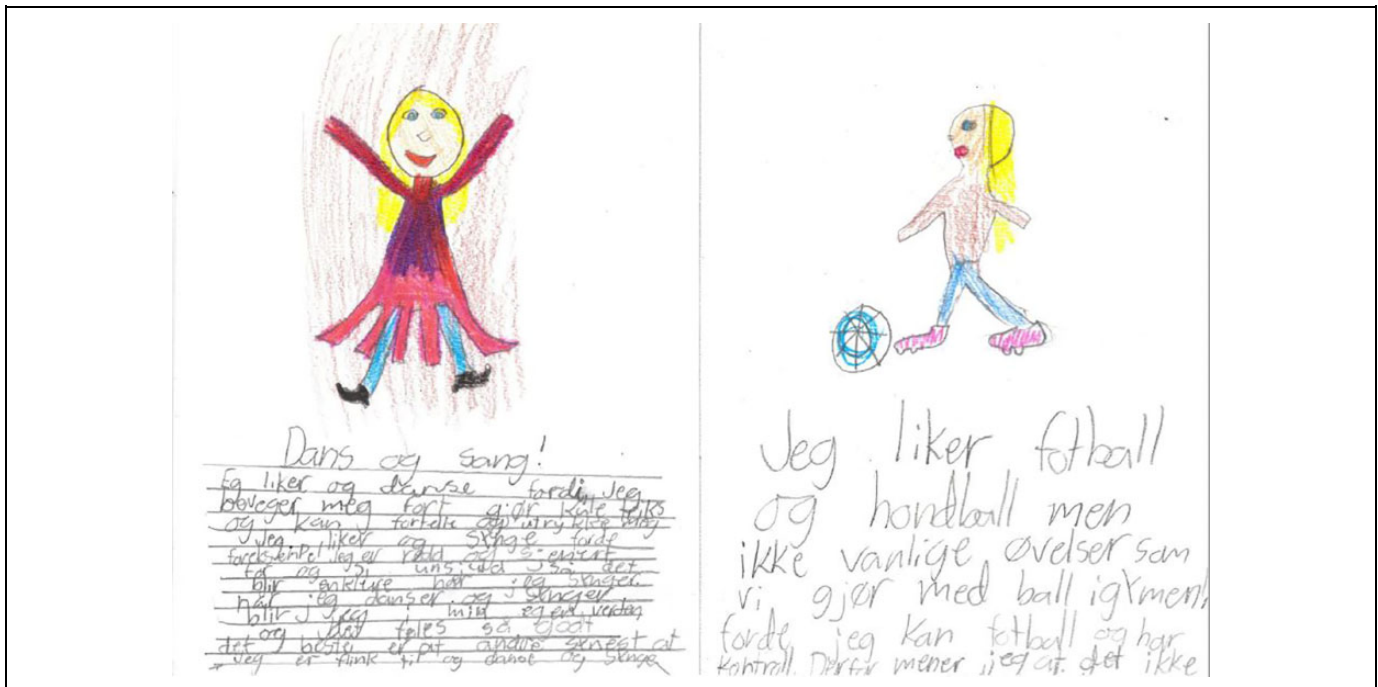 Dans og sang!
Eg liker og danse fordi jeg
beveger meg fort gjør kule triks
og kan fortelle og utrykke meg
Jeg liker og synge forde
foreksempel Jeg er redd og sjenert
for og si unskyld så det
blir enklere når jeg synger.
når jeg danser og synger
blir jeg i min egen verden
og det føles så godt
det beste er at andre synest at
jeg er flink til og danse og synge
Jeg liker fotball
og hondball men
ikke vanlige øvelser som
vi gjør med ball i gymen!
forde jeg kan fotball og har
kontroll. Derfor mener jeg at det ikke